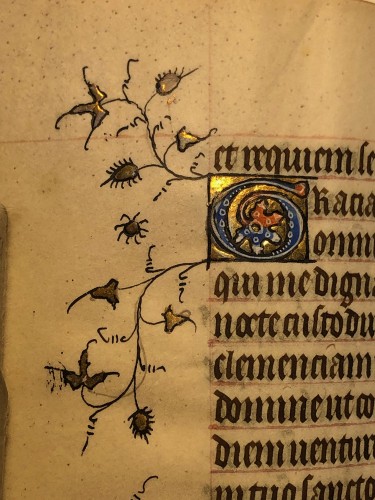 et requiem se
GRacia
omin
qui me dign
nocte custodi
clemenciam
domine ut co
diem uentur
in tuo sancto